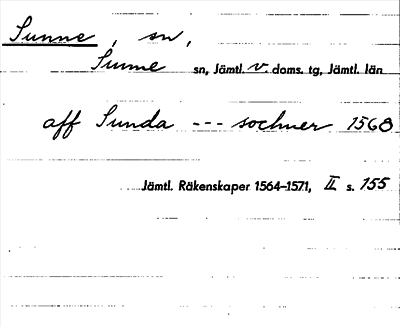 Sunne, sn,
Sunne sn, Jämtl. v. doms. tg, Jämtl. län
aff Sunda --- sochner 1568
Jämtl. Räkenskaper 1564–1571, II s. 155